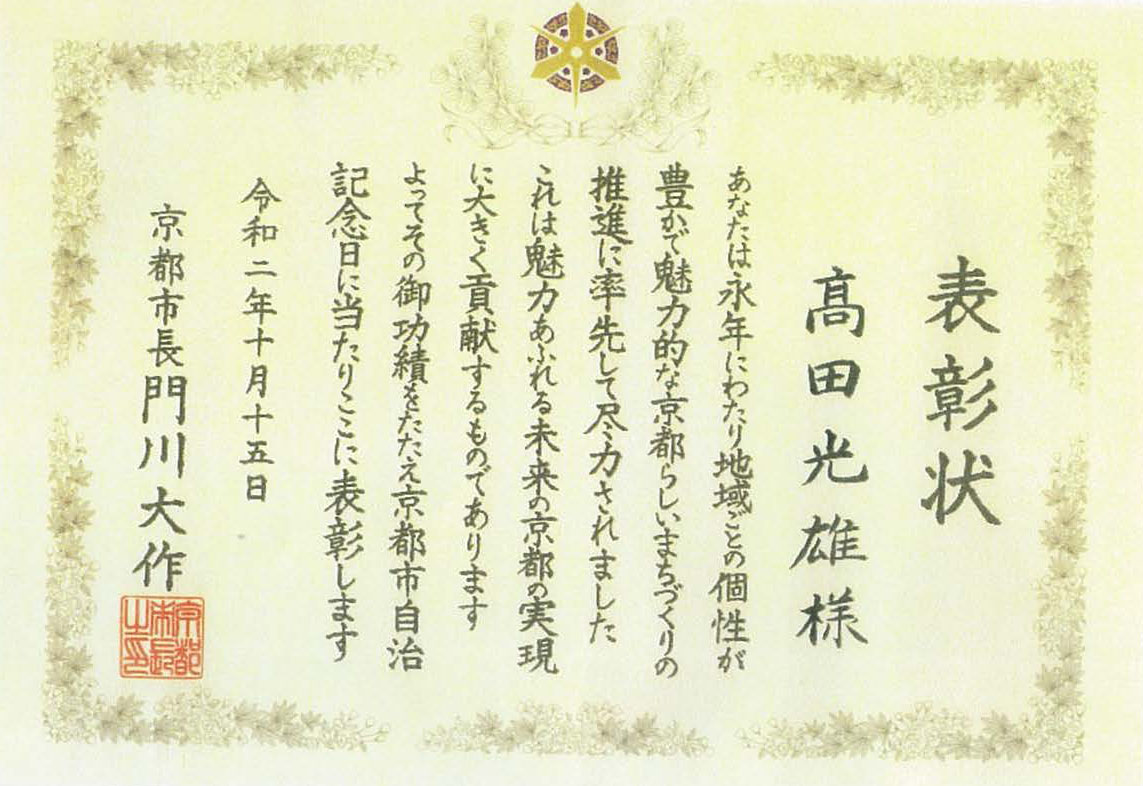 表彰状
髙田光雄様
あなたは永年にわたり地域ごとの個性が
豊かで魅力的な京都らしいまちづくりの
推進に率先して尽力されました
これは魅力あふれる未来の京都の実現
に大きく貢献するものであります
よってその御功績をたたえ京都市自治
記念日に当たりここに表彰します
令和二年十月十五日
京都市長門川大作
京都
市長
之印